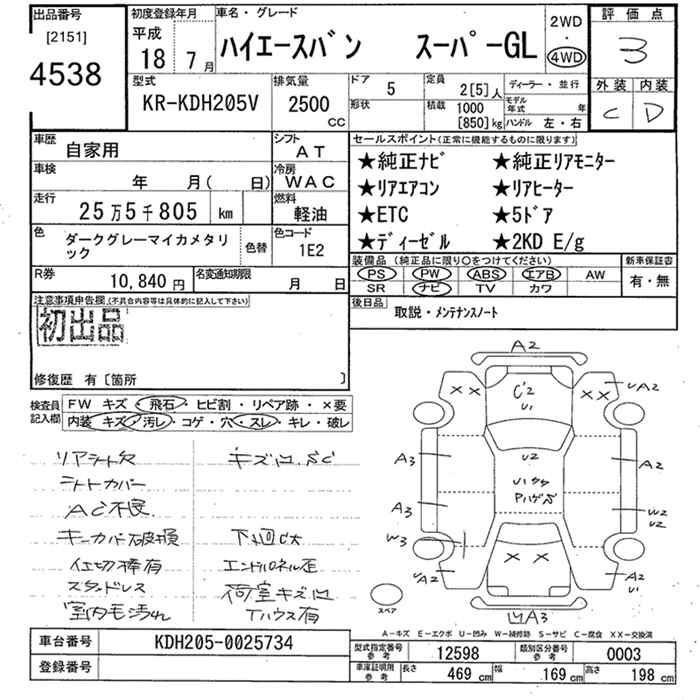 出品番号
[2151]
4538
初度登録年月
平成
18年7月
車名・グレード
ハイエースバン スーパーGL
2WD
4WD
評価点
3
外装 内装
C D
型式
KR-KDH205V
排気量
2500
CC
ドア 5
定員 2[5]人
ディーラー・並行
形状
積載 1000
[850]kg
モデル年式 年
ハンドル 左・右
車歴
自家用
シフト
AT
車検
年 月( 日)
冷房
WAC
走行
25万5千805 km
燃料
軽油
色
ダークグレーマイカメタリック
色替
色コード
1E2
R券
10,840円
名変通知期限
月 日
セールスポイント(正常に機能するものに限ります)
★純正ナビ ★純正リアモニター
★リアエアコン ★リアヒーター
★ETC ★5ドア
★ディーゼル ★2KD E/g
装備品 (純正品に限り○をつけてください)
新車保証書
PS PW ABS エアB AW
SR ナビ TV カワ
有・無
後日品
取説・メンテナンスノート
注意事項申告欄(不具合内容等は具体的に記入して下さい)
初出品
修復歴 有 [箇所 ]
検査員記入欄
FW キズ・飛石・ヒビ割・リペア跡・×要
内装 キズ・汚レ・コゲ・穴・スレ・キレ・破レ
リアシート欠
シートカバー
AC不良
キーカバー破損
社外棒有
スタッドレス
室内毛汚れ
キズ凹、SC
下廻C大
エンドパネル歪
荷室キズ凹
Tハウス有
A2
C'2
U1
××
××
UA2
A3
A2
U2
U1
Pハゲ
A3
W2
U2
W3
××
UA2
A2
U1
凹A3
スペア
A-キズ E-エクボ U-凹み W-補修跡 S-サビ C-腐食 XX-交換済
車台番号
KDH205-0025734
登録番号
型式指定番号 参考
12598
類別区分番号 参考
0003
車庫証明用 参考
長さ 469 cm 幅 169 cm 高さ 198 cm